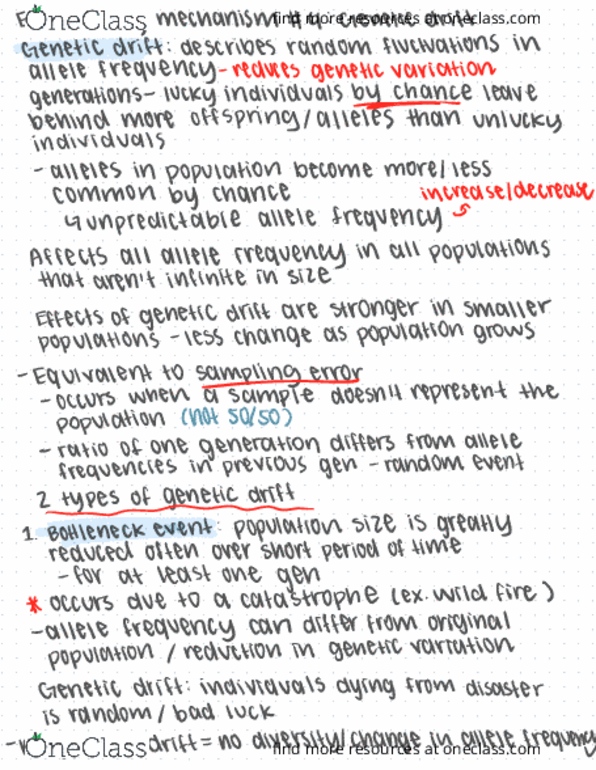 OneClass mechanism find more resources at oneclass.com
Genetic drift: describes random fluctuations in
allele frequency - reduces genetic variation
generations - lucky individuals by chance leave
behind more offspring/alleles than unlucky
individuals
- alleles in population become more/less
common by chance increase/decrease
↳ unpredictable allele frequency
Affects all allele frequency in all populations
that aren't infinite in size
Effects of genetic drift are stronger in smaller
populations - less change as population grows
- Equivalent to sampling error
- occurs when a sample doesn't represent the
population (not 50/50)
- ratio of one generation differs from allele
frequencies in previous gen - random event
2 types of genetic drift
1. Bottleneck event: population size is greatly
reduced often over short period of time
- for at least one gen
* occurs due to a catastrophe (ex. wild fire)
- allele frequency can differ from original
population / reduction in genetic variation
Genetic drift: individuals dying from disaster
is random / bad luck
OneClass drift = no diversity/change in allele frequency
find more resources at oneclass.com